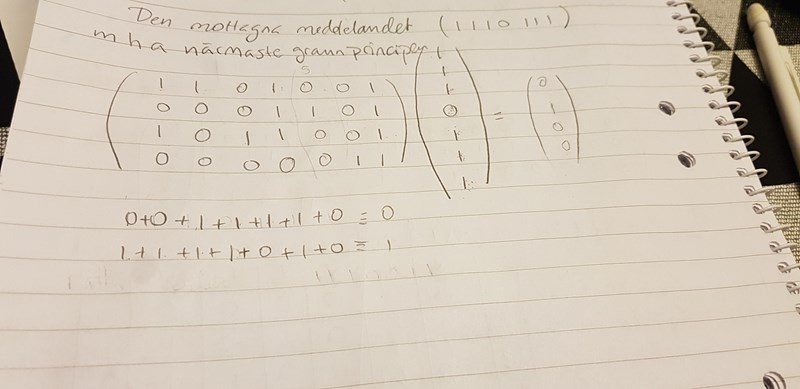 Den mottagna meddelandet (1110111)
m h a närmaste grannprincipen
1 1 0 1 0 0 1 1
0 0 0 1 1 0 1 1
1 0 1 1 0 0 1 1 0
0 0 0 0 0 1 1 0 = 1
1 0
1 0
1
0+0+1+1+1+1+0 ≡ 0
1+1+1+1+0+1+0 ≡ 1